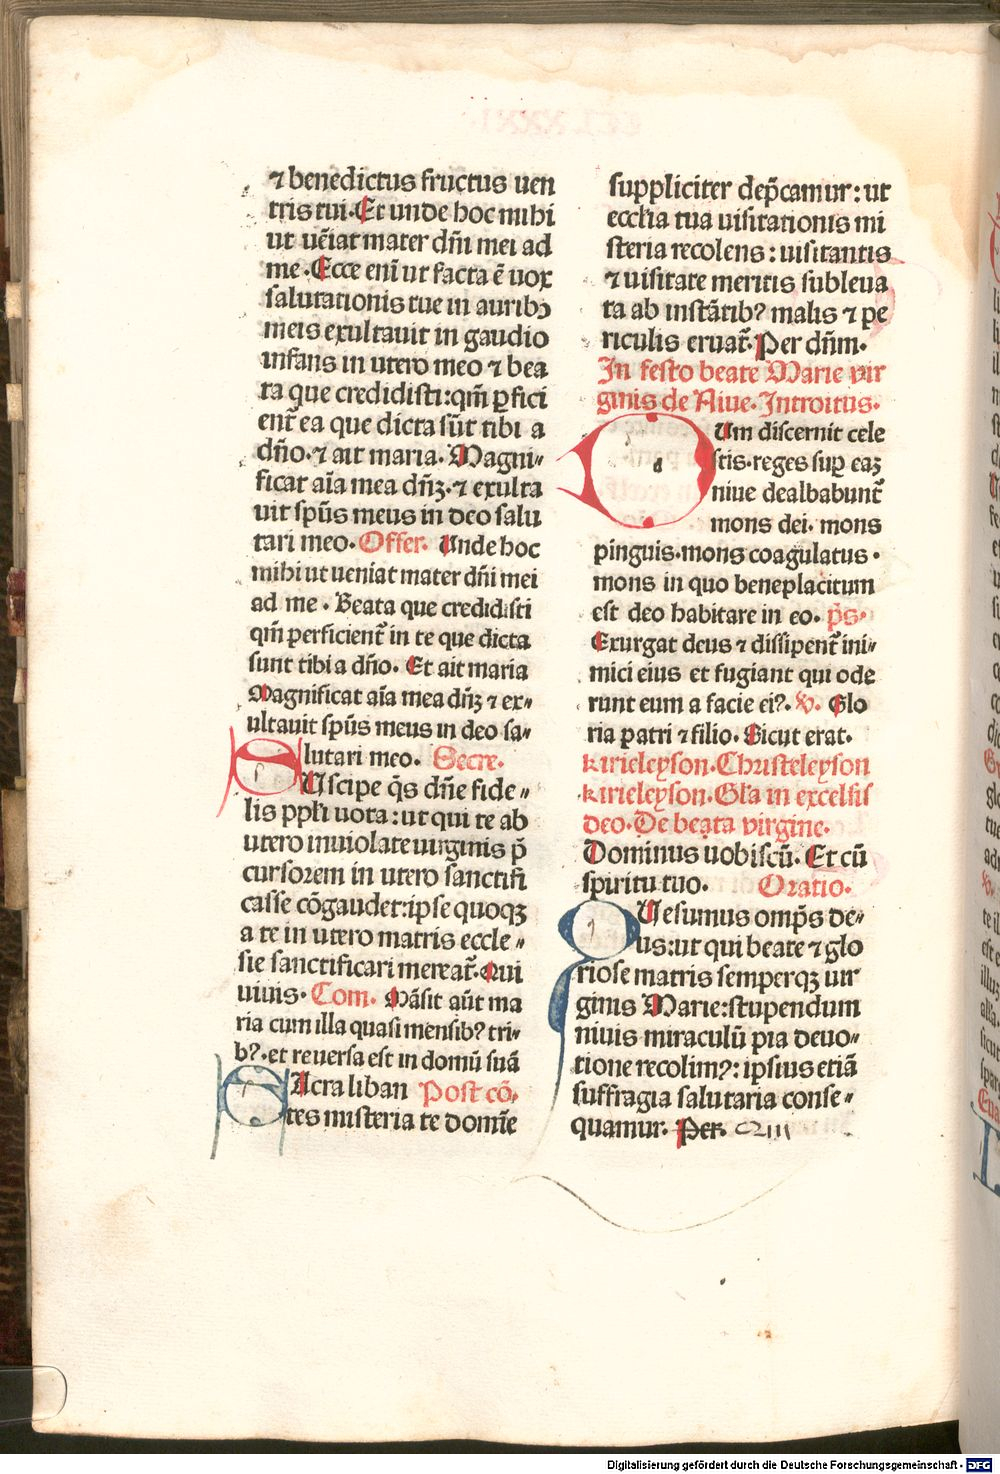 ⁊ benedictus fructus uen
tris tui. Et unde hoc mihi
ut uēiat mater dñi mei ad
me. Ecce eni᷑ ut facta ē uox
salutationis tue in auribꝰ
meis exultauit in gaudio
infans in utero meo ⁊ bea
ta que credidisti: qm̄ ꝑfici
ent᷑ ea que dicta sūt tibi a
dño. ⁊ ait maria. Magni⸗
ficat aīa mea dñꝫ. ⁊ exulta
uit spūs meus in deo salu
tari meo. Offer. Unde hoc
mihi ut ueniat mater dñi mei
ad me. Beata que credidisti
qm̄ perficient᷑ in te que dicta
sunt tibi a dño. Et ait maria
Magnificat aīa mea dñꝫ ⁊ ex⸗
ultauit spūs meus in deo sa⸗
lutari meo. Secre.
SUscipe q̄s dñe fide⸗
lis ppłi uota: ut qui te ab
utero inuiolate uirginis p̄
cursorem in utero sanctifi
casse cōgaudet: ipse quoqꝫ
a te in utero matris eccle⸗
sie sanctificari mereat᷑. Qui
uiuis. Com. Māsit aūt ma
ria cum illa quasi mensibꝰ tri⸗
bꝰ. et reuersa est in domū suā
SAcra liban Post cō.
tes misteria te domīe
suppliciter dep̄camur: ut
eccłia tua uisitationis mi
steria recolens: uisitantis
⁊ uisitate meritis subleua
ta ab instātibꝰ malis ⁊ pe
riculis eruat᷑. Per dñm.
In festo beate Marie vir
ginis de Niue. Introitus.
DUm discernit cele
stis. reges suꝑ eaꝫ
niue dealbabunt᷑
mons dei. mons
pinguis. mons coagulatus.
mons in quo beneplacitum
est deo habitare in eo. p̄s.
Exurgat deus ⁊ dissipent᷑ ini⸗
mici eius et fugiant qui ode
runt eum a facie eiꝰ. V. Glo
ria patri ⁊ filio. Sicut erat.
kirieleyson. Christeleyson
kirieleyson. Gła in excelsis
deo. De beata virgine.
Dominus uobiscū. Et cū
spiritu tuo. Oratio.
QUesumus omp̄s de⸗
us: ut qui beate ⁊ glo
riose matris semperqꝫ uir
ginis Marie: stupendum
niuis miraculū pia deuo⸗
tione recolimꝰ: ipsius etiā
suffragia salutaria conse⸗
quamur. Per.
Digitalisierung gefördert durch die Deutsche Forschungsgemeinschaft - DFG